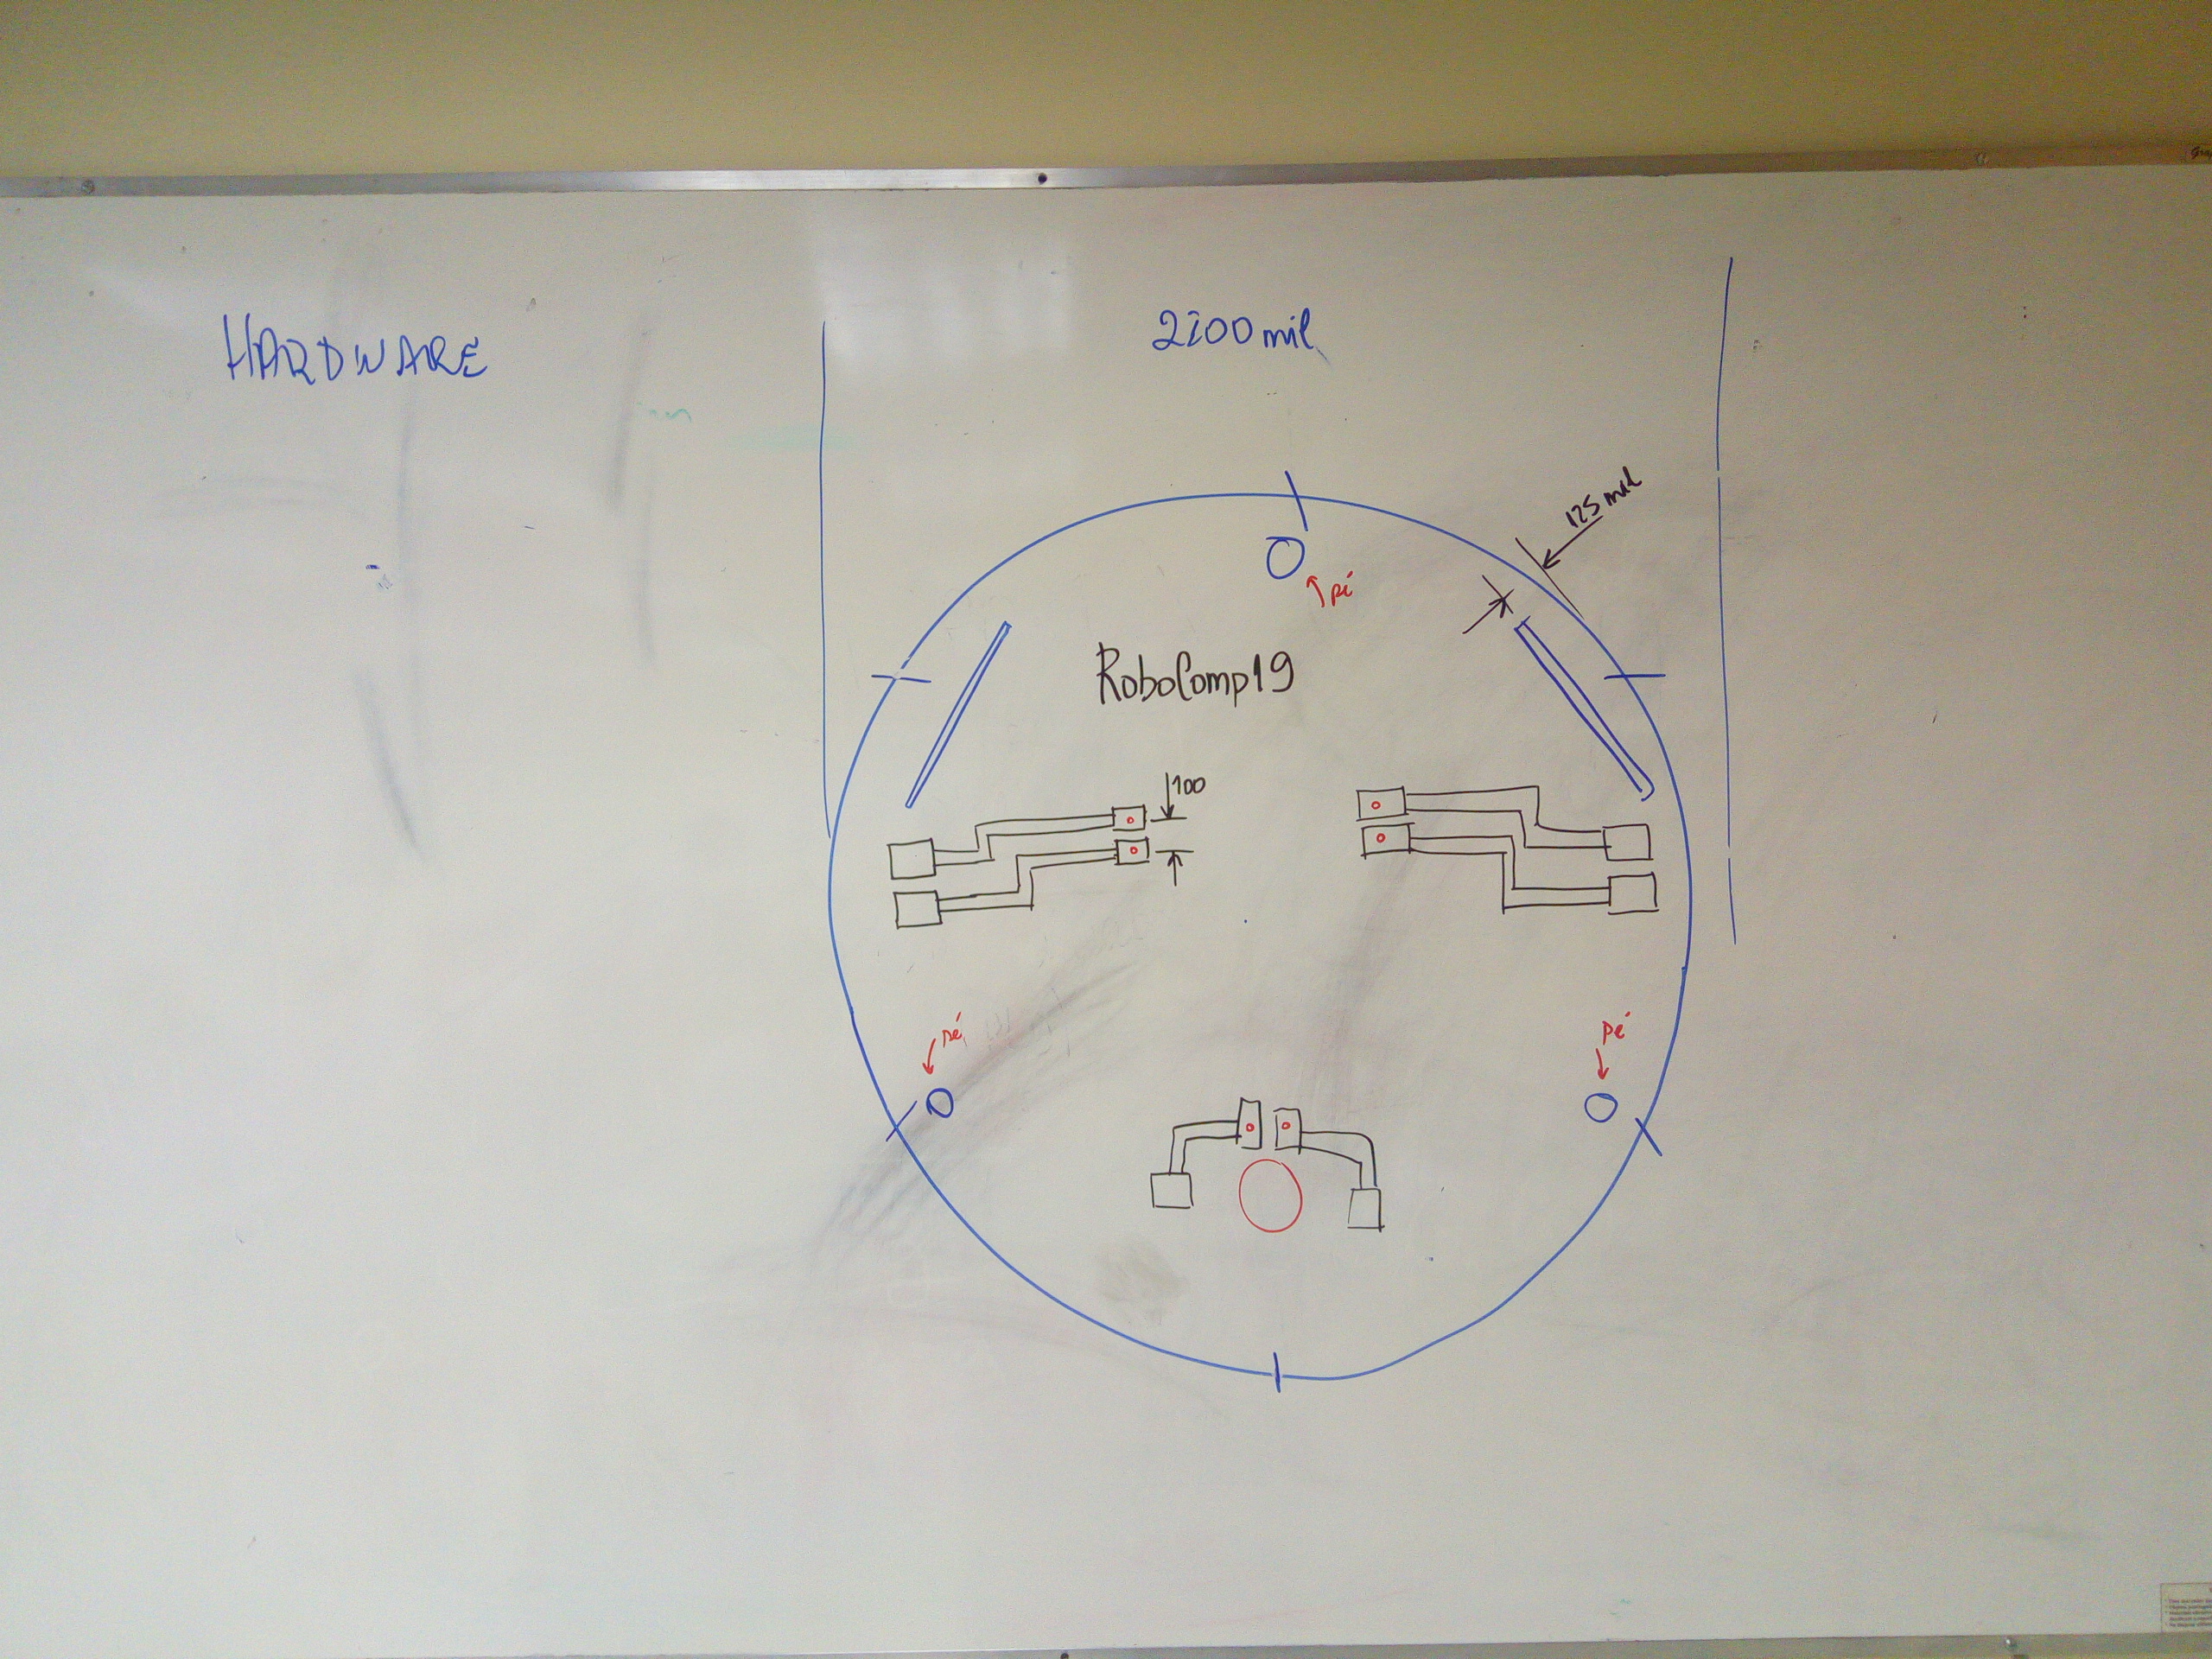 HARDWARE
2200 mil
125 mil
pé
RoboComp19
100
pé
pé